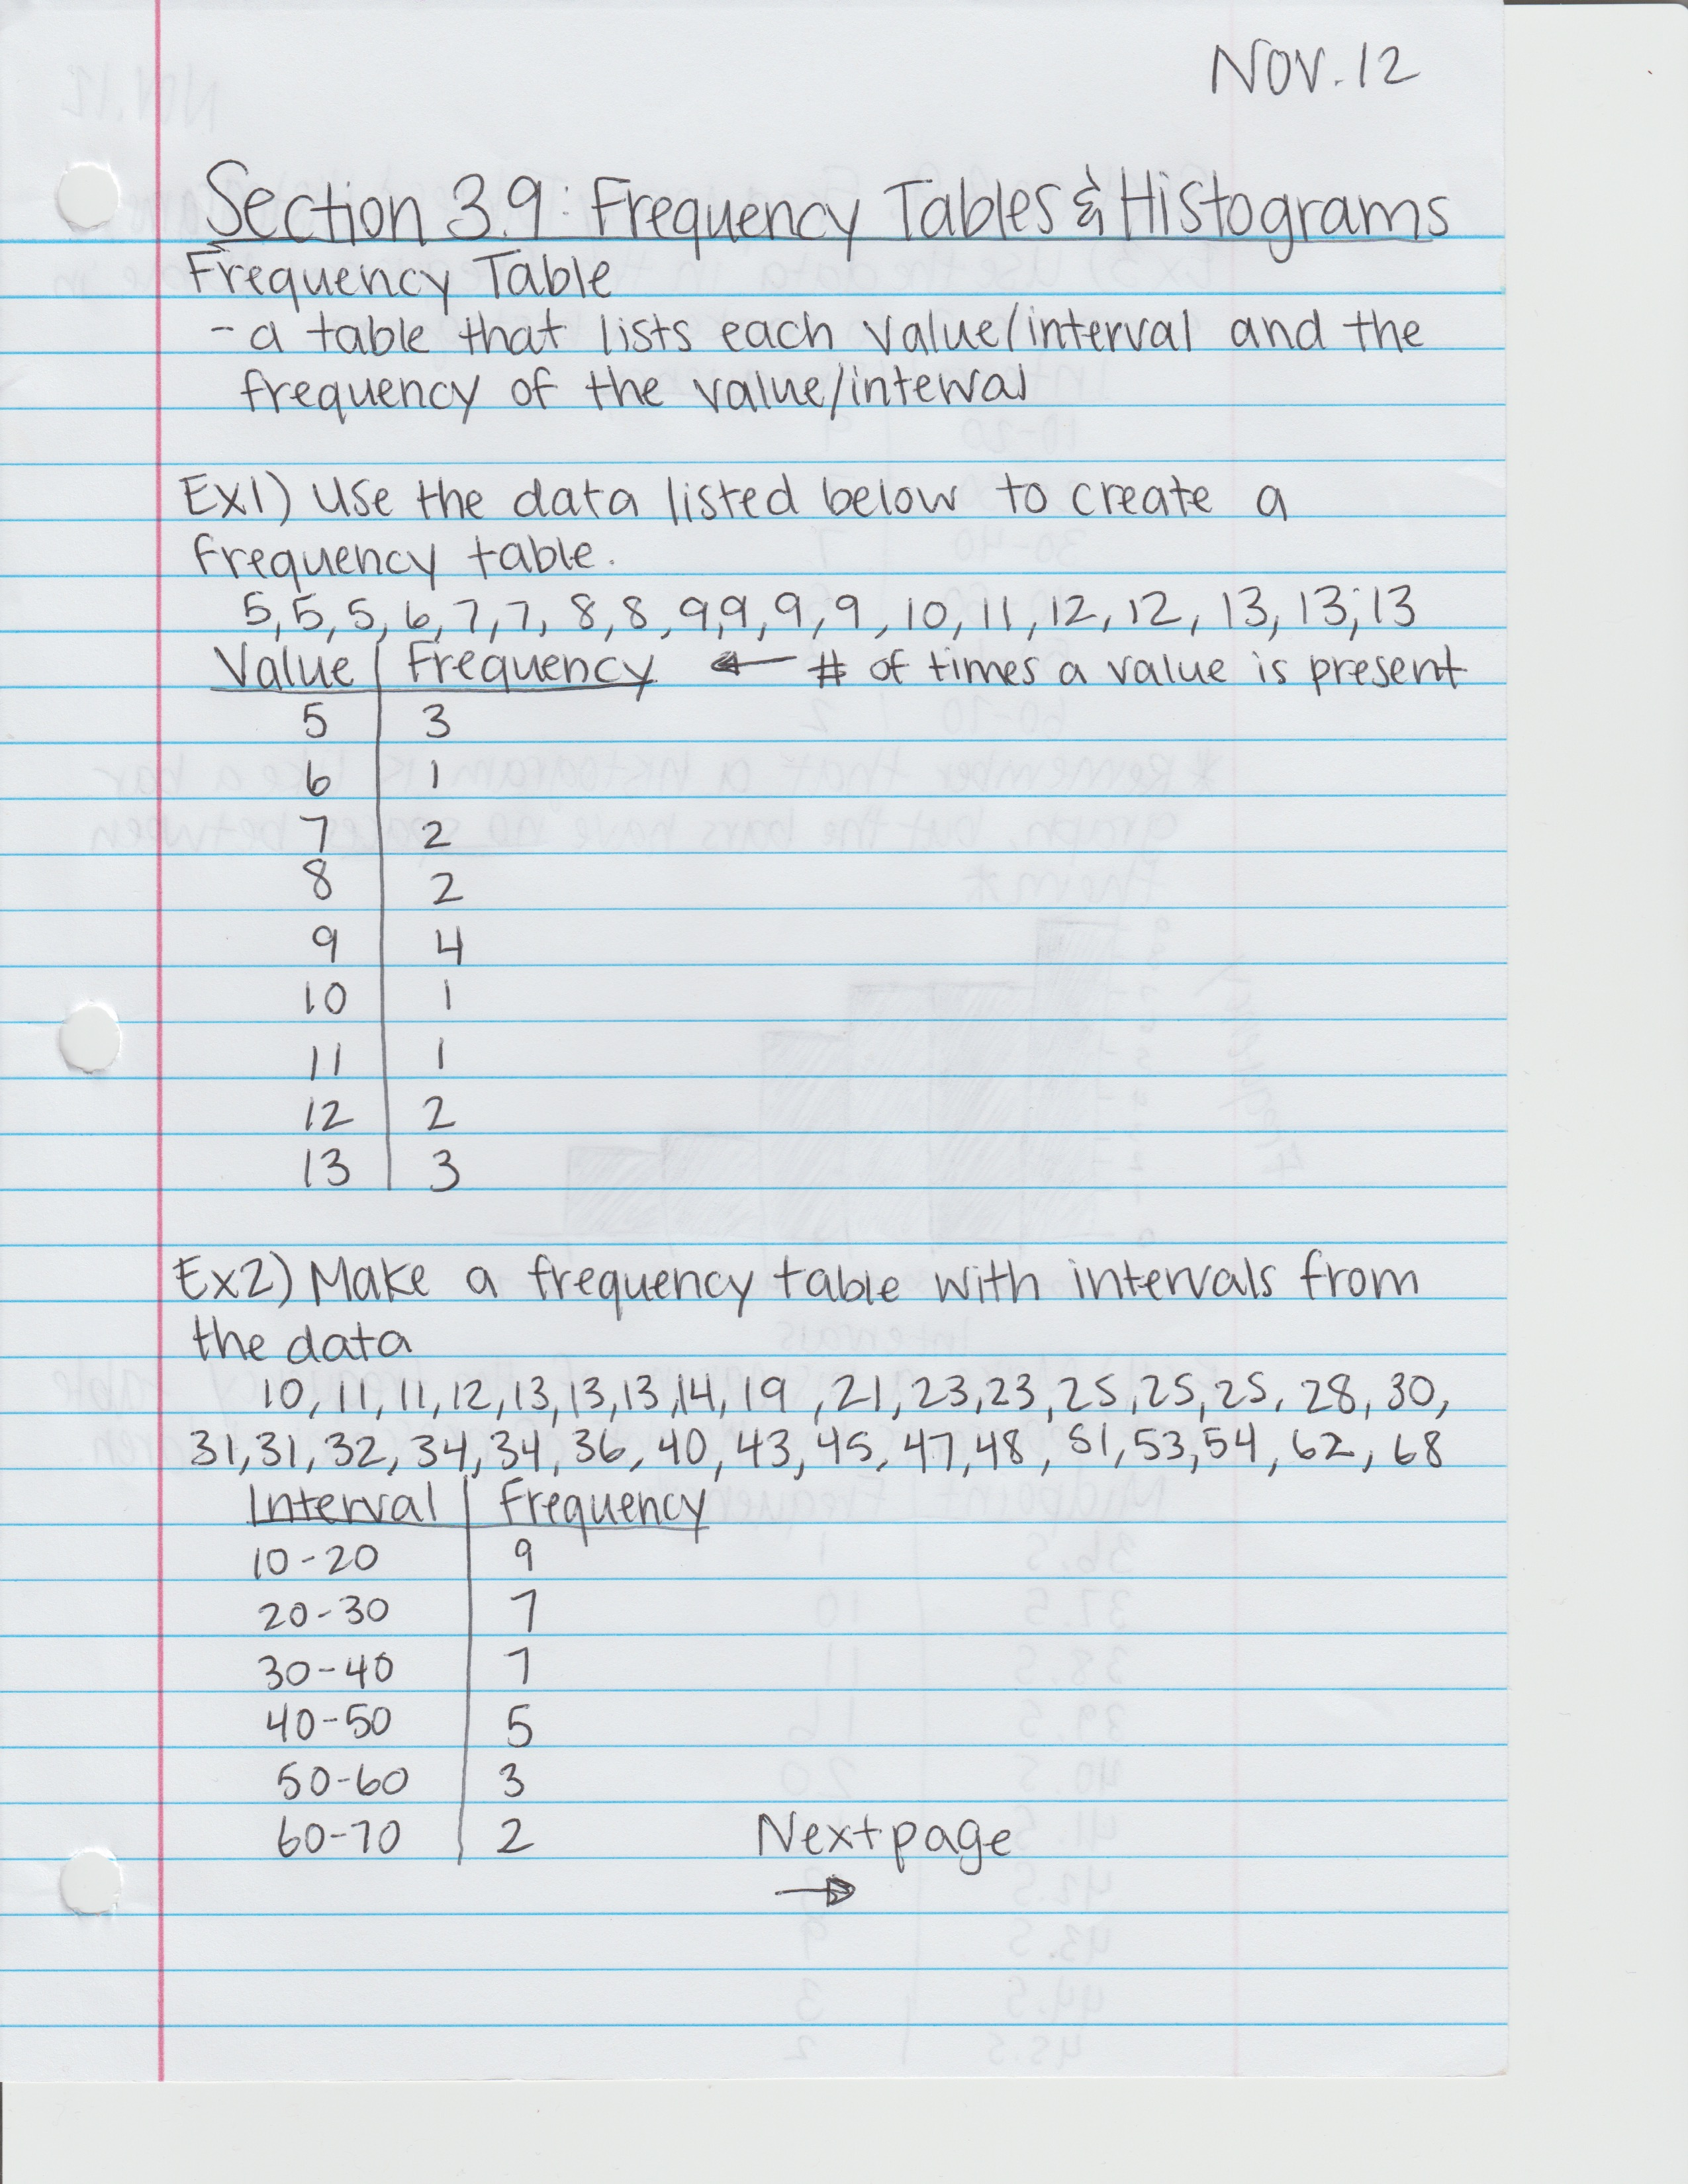 NOV. 12
Section 3.9: Frequency Tables & Histograms
Frequency Table
- a table that lists each value/interval and the
frequency of the value/interval
Ex1) Use the data listed below to create a
frequency table.
5, 5, 5, 6, 7, 7, 8, 8, 9, 9, 9, 9, 10, 11, 12, 12, 13, 13, 13
Value | Frequency ← # of times a value is present
5 | 3
6 | 1
7 | 2
8 | 2
9 | 4
10 | 1
11 | 1
12 | 2
13 | 3
Ex2) Make a frequency table with intervals from
the data
10, 11, 11, 12, 13, 13, 13, 14, 19, 21, 23, 23, 25, 25, 25, 28, 30,
31, 31, 32, 34, 34, 36, 40, 43, 45, 47, 48, 51, 53, 54, 62, 68
Interval | Frequency
10-20 | 9
20-30 | 7
30-40 | 7
40-50 | 5
50-60 | 3
60-70 | 2
Next page
→